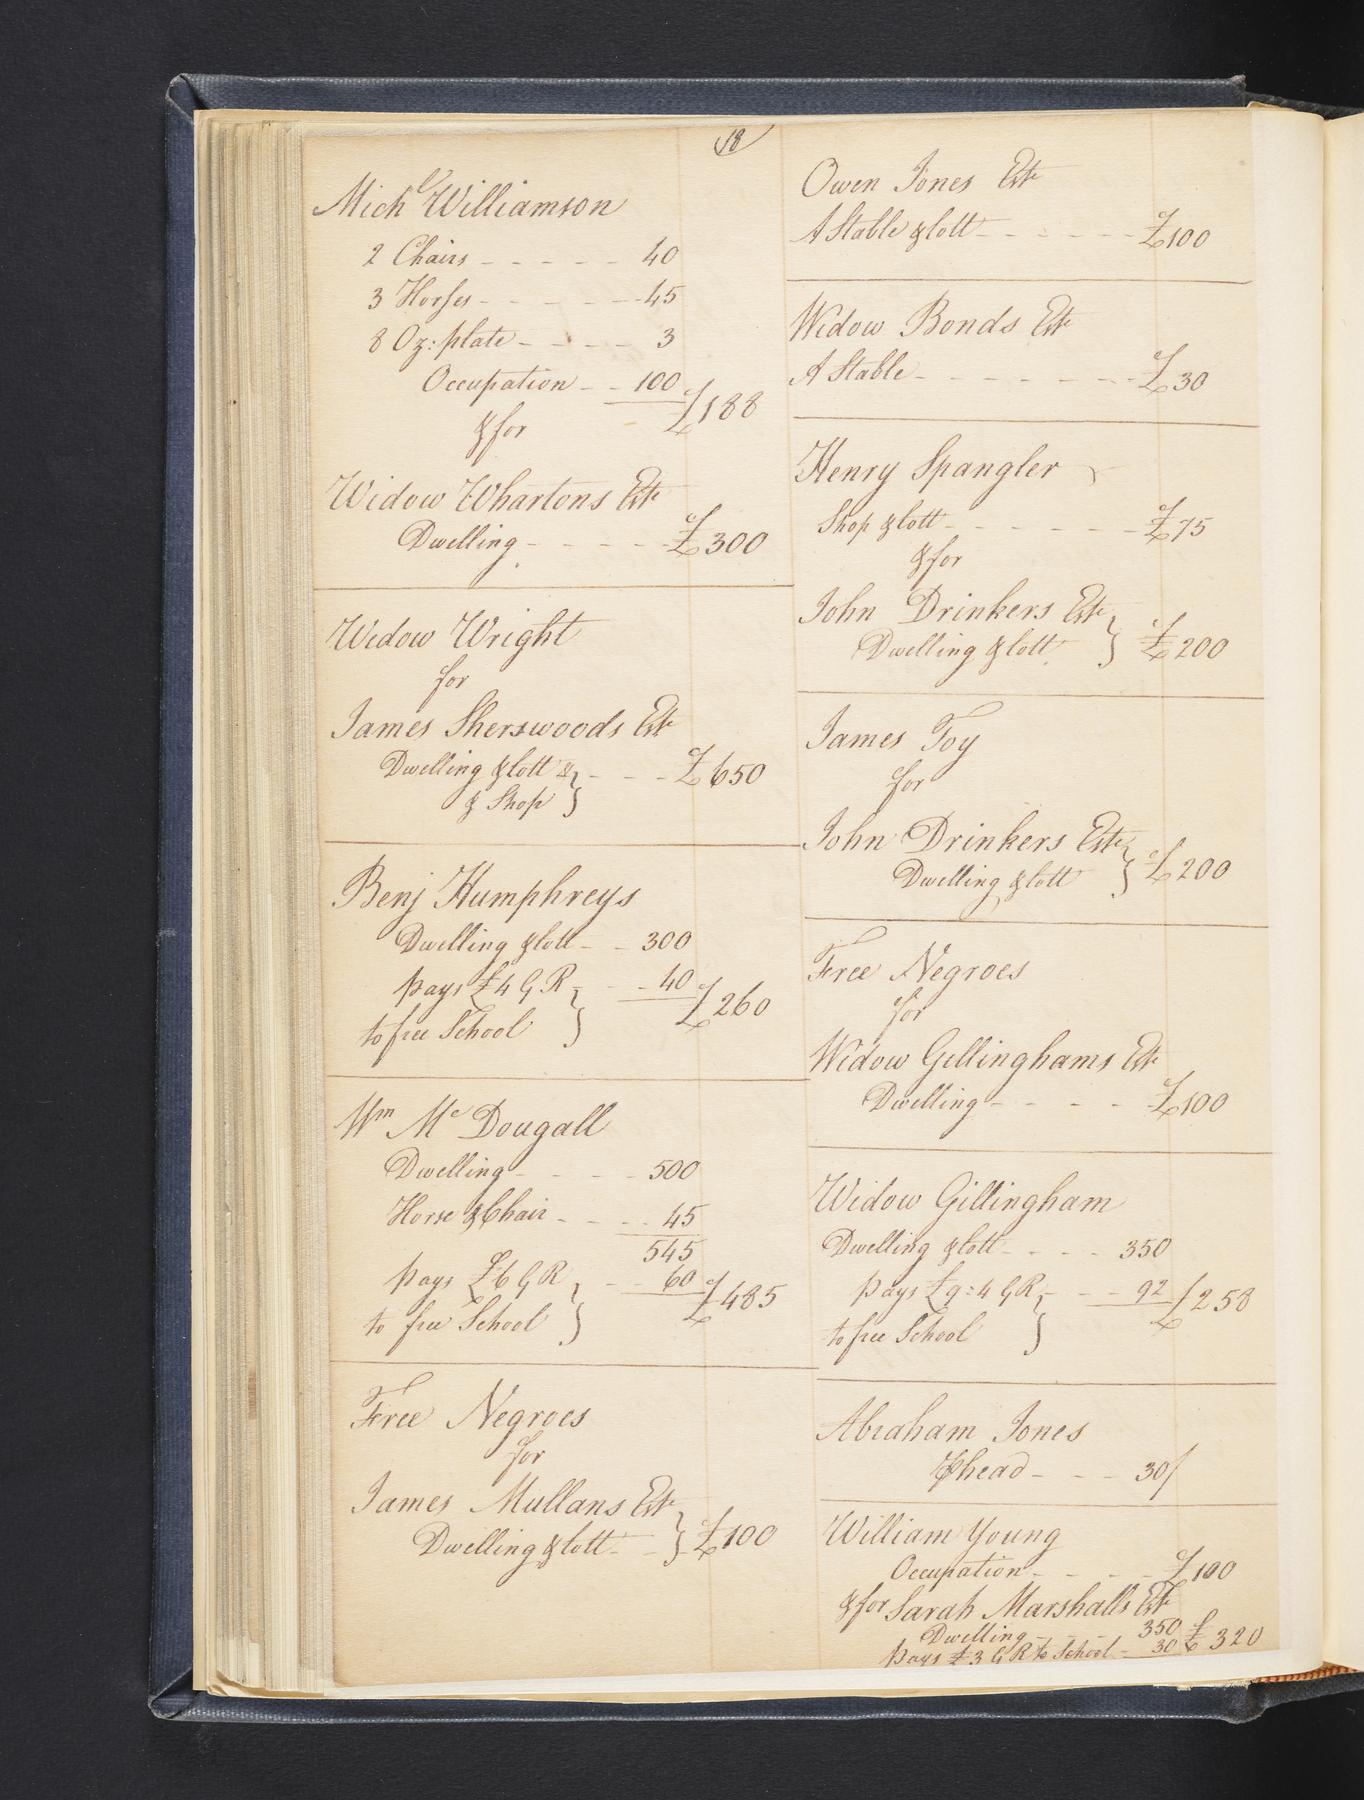 18
Mich.l Williamson
2 Chairs - - - - - 40
3 Horses - - - - - 45
8 Oz: plate - - - - 3
Occupation - - 100 £188
& for
Widow Whartons Est
Dwelling - - - - - £300
Widow Wright
for
James Sherswoods Est
Dwelling & lott &
& Shop } - - - £650
Benj Humphreys
Dwelling & lott - - 300
pays £4 G R - - 40 £260
to free School }
Wm Mc Dougall
Dwelling - - - - 500
Horse & Chair - - - - 45
545
pays £6 G R } - - 60 £485
to free School
Free Negroes
for
James Mullans Est
Dwelling & lott - - } £100
Owen Jones Est
A Stable & lott - - - - - - £100
Widow Bonds Est
A Stable - - - - - - - £30
Henry Spangler
Shop & lott - - - - - - £75
& for
John Drinkers Est
Dwelling & lott } £200
James Toy
for
John Drinkers Est
Dwelling & lott } £200
Free Negroes
for
Widow Gillinghams Est
Dwelling - - - - £100
Widow Gillingham
Dwelling & lott - - - - 350
pays £9:4 G R - - - 92 £258
to free School }
Abraham Jones
P head - - - 30/
William Young
Occupation - - - - £100
& for Sarah Marshalls Est
Dwelling - - - 350
pays £3 G R to School - 30 £320